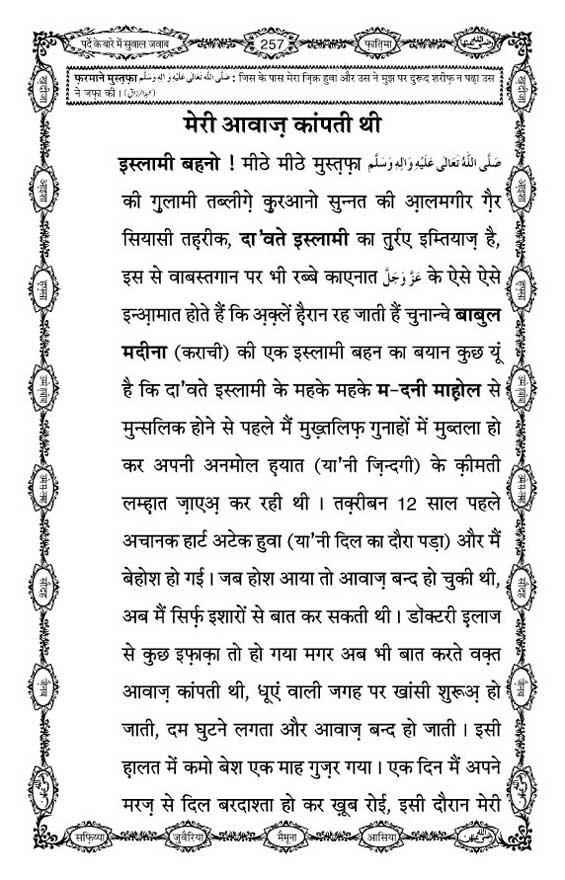 पर्दे के बारे में सुवाल जवाब
257
फ़ातिमा
फ़रमाने मुस्तफ़ा صَلَّى اللهُ تَعَالٰى عَلَيْهِ وَاٰلِهٖ وَسَلَّم : जिस के पास मेरा ज़िक्र हुवा और उस ने मुझ पर दुरूद शरीफ़ न पढ़ा उस
ने जफ़ा की। (عبدالرزاق)
मेरी आवाज़ कांपती थी
इस्लामी बहनो ! मीठे मीठे मुस्त़फ़ा صَلَّى اللهُ تَعَالٰى عَلَيْهِ وَاٰلِهٖ وَسَلَّم
की ग़ुलामी तब्लीग़े क़ुरआनो सुन्नत की आ़लमगीर ग़ैर
सियासी तह़रीक, दा'वते इस्लामी का तुर्रए इम्तियाज़ है,
इस से वाबस्तगान पर भी रब्बे काएनात عَزَّ وَجَلَّ के ऐसे ऐसे
इन्आ़मात होते हैं कि अ़क़्लें ह़ैरान रह जाती हैं चुनान्चे बाबुल
मदीना (कराची) की एक इस्लामी बहन का बयान कुछ यूं
है कि दा'वते इस्लामी के महके महके म-दनी माह़ोल से
मुन्सलिक होने से पहले मैं मुख़्तलिफ़ गुनाहों में मुब्तला हो
कर अपनी अनमोल ह़यात (या'नी ज़िन्दगी) के क़ीमती
लम्ह़ात ज़ाएअ़ कर रही थी । तक़्रीबन 12 साल पहले
अचानक हार्ट अटेक हुवा (या'नी दिल का दौरा पड़ा) और मैं
बेहोश हो गई । जब होश आया तो आवाज़ बन्द हो चुकी थी,
अब मैं सिर्फ़ इशारों से बात कर सकती थी । डॉक्टरी इलाज
से कुछ इफ़ाक़ा तो हो गया मगर अब भी बात करते वक़्त
आवाज़ कांपती थी, धूएं वाली जगह पर खांसी शुरूअ़ हो
जाती, दम घुटने लगता और आवाज़ बन्द हो जाती । इसी
ह़ालत में कमो बेश एक माह गुज़र गया । एक दिन मैं अपने
मरज़ से दिल बरदाश्ता हो कर ख़ूब रोई, इसी दौरान मेरी
सफ़िय्या
जुवैरिया
मैमूना
आसिया